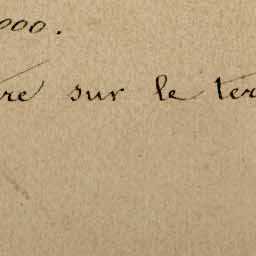 000.
re sur le ter